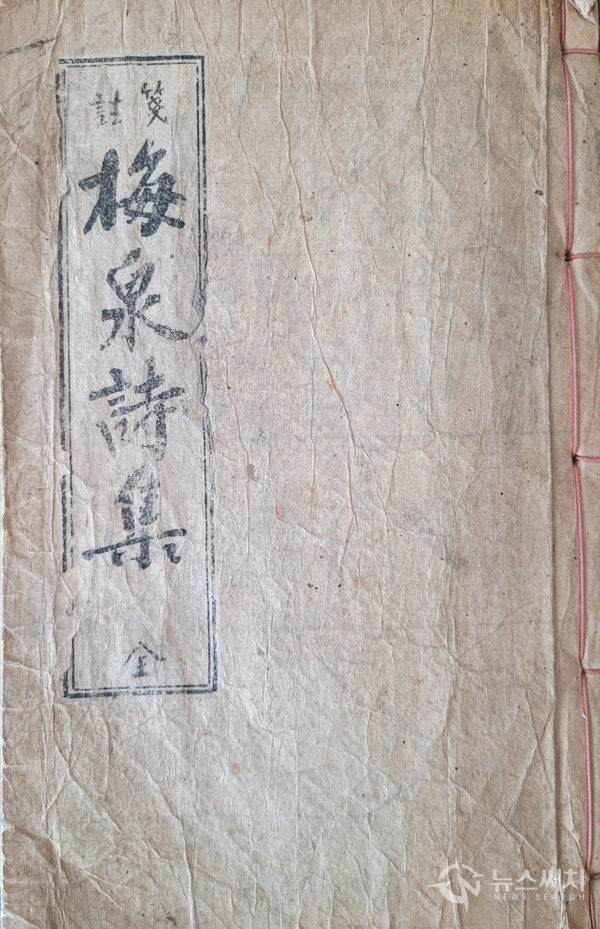 箋註
梅泉詩集
全
뉴스써치
NEWS SEARCH